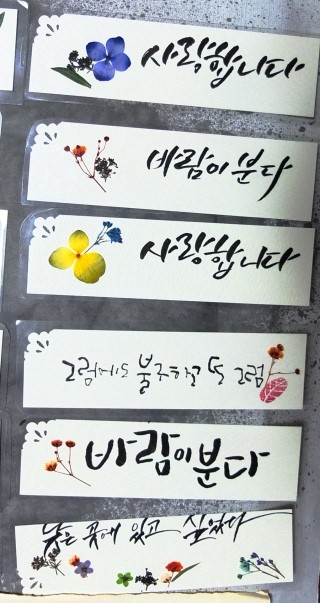 사랑합니다
바람이 분다
사랑합니다
그럼에도 불구하고 또 그럼
바람이 분다
낮은 곳에 있고 싶었다